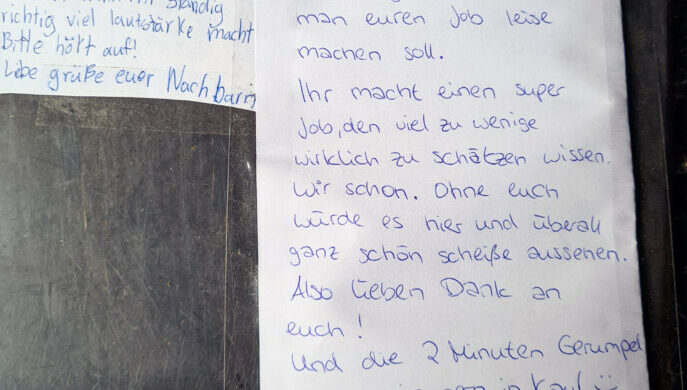 ständig
richtig viel lautstärke macht
Bitte hört auf!
Liebe grüße euer Nachbarn
man euren Job leise
machen soll.
Ihr macht einen super
Job, den viel zu wenige
wirklich zu schätzen wissen.
Wir schon. Ohne euch
würde es hier und überall
ganz schön scheiße aussehen.
Also lieben Dank an
euch!
Und die 2 Minuten Gerumpel
in Kauf